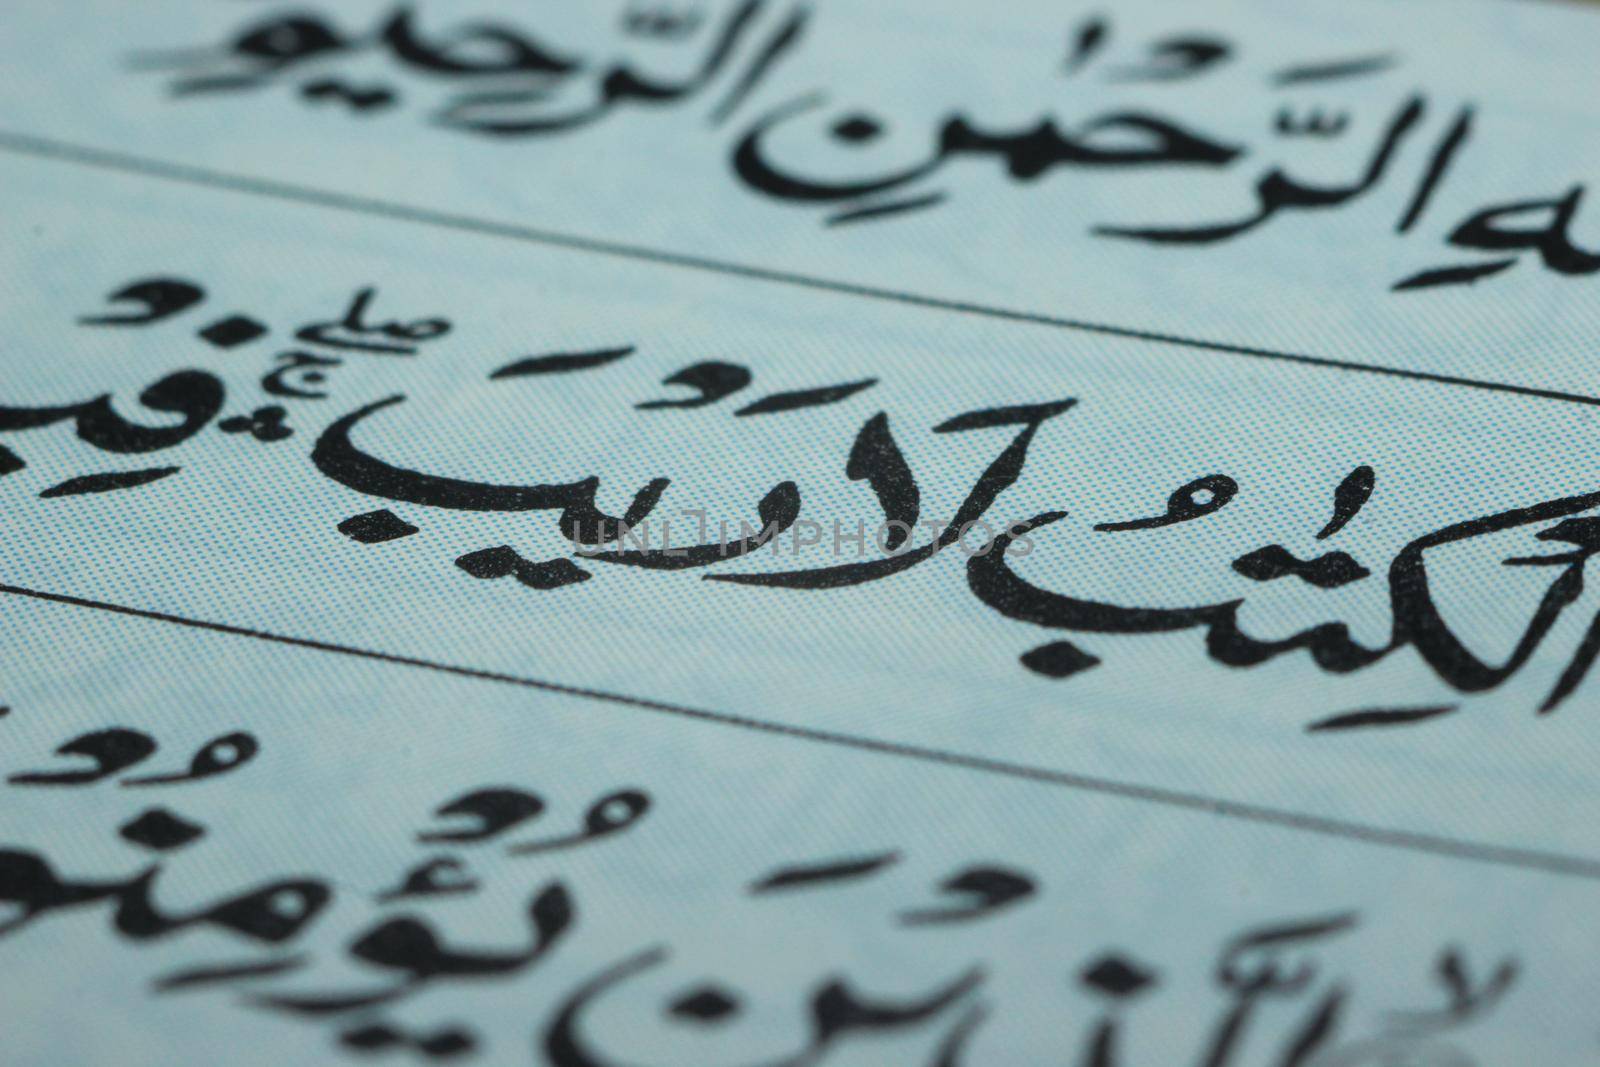 ـهِ الرَّحْمٰنِ الرَّحِيْمِ
الْكِتٰبُ لَا رَيْبَ ۛۖۚ فِيْـ
لا الَّذِيْنَ يُؤْمِنُوْ
UNLIMPHOTOS